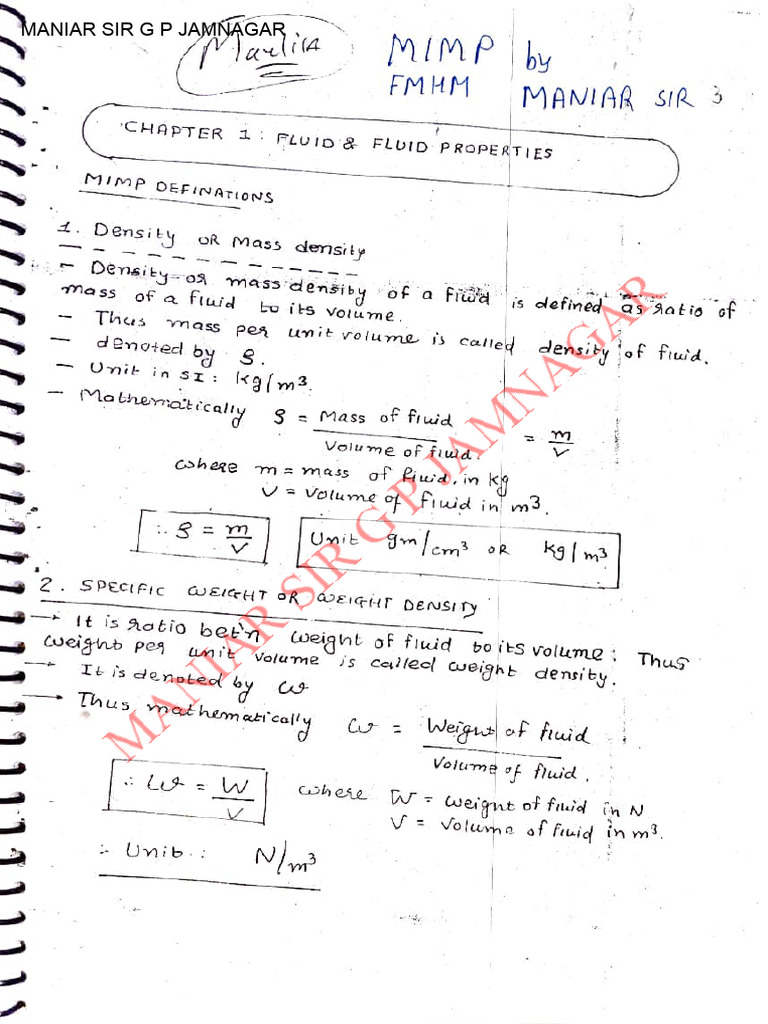 MANIAR SIR G P JAMNAGAR
MIMP by
FMHM MANIAR SIR 3
CHAPTER 1: FLUID & FLUID PROPERTIES
MIMP DEFINATIONS
1. Density OR Mass density
- Density or mass density of a fluid is defined as ratio of
mass of a fluid to its volume.
- Thus mass per unit volume is called density of fluid.
- denoted by ρ.
- Unit in SI: kg/m³.
- Mathematically ρ = Mass of fluid / Volume of fluid. = m/v
where m = mass of fluid in kg
V = volume of fluid in m³.
∴ ρ = m/V Unit gm/cm³ OR kg/m³
2. SPECIFIC WEIGHT OR WEIGHT DENSITY
→ It is ratio bet'n weight of fluid to its volume: Thus
weight per unit volume is called weight density.
→ It is denoted by ω
→ Thus mathematically ω = Weight of fluid / Volume of fluid.
∴ ω = W/V where W = weight of fluid in N
V = volume of fluid in m³.
∴ Unit: N/m³
MANIAR SIR G P JAMNAGAR